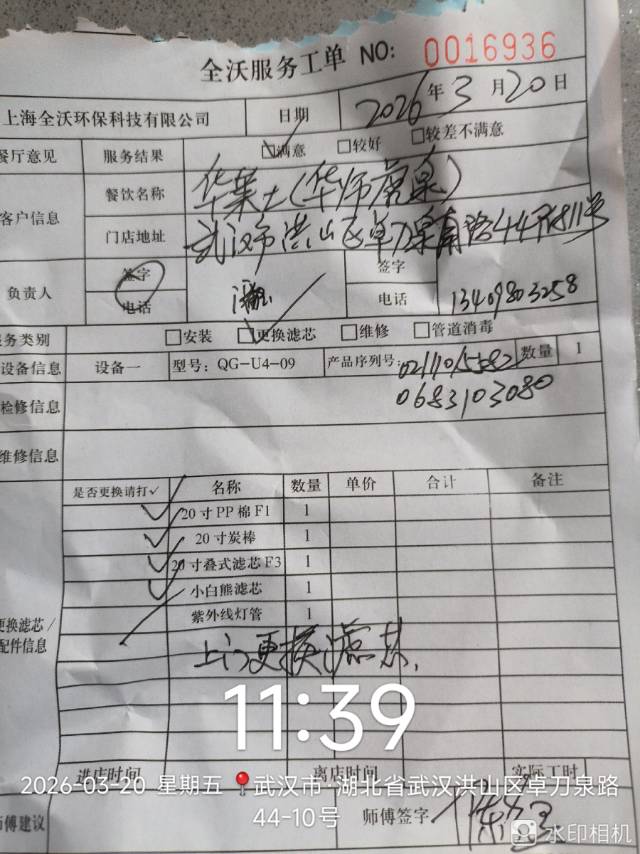 全沃服务工单 NO: 0016936
上海全沃环保科技有限公司 日期 2026年3月20日
餐厅意见 服务结果 ☑满意 □较好 □较差不满意
客户信息 餐饮名称 华莱士(华师虎泉)
门店地址 武汉市洪山区卓刀泉南路44附11号
负责人 签字 签字
电话 电话 13409803258
服务类别 □安装 ☑更换滤芯 □维修 □管道消毒
设备信息 设备一 型号: QG-U4-09 产品序列号: 数量 1
0683103080
检修信息
维修信息
是否更换请打✓ 名称 数量 单价 合计 备注
✓ 20寸PP棉F1 1
✓ 20寸炭棒 1
✓ 20寸叠式滤芯F3 1
✓ 小白熊滤芯 1
紫外线灯管 1
更换滤芯/
配件信息
上门更换滤芯.
11:39
进店时间 离店时间 实际工时
2026-03-20 星期五 武汉市·湖北省武汉洪山区卓刀泉路
44-10号
师傅建议 师傅签字
水印相机